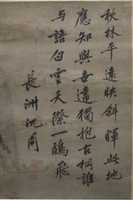 秋林平遠映斜暉此地
應知與違獨抱古桐誰
与語白雲天際一鴻飛
長洲沈周